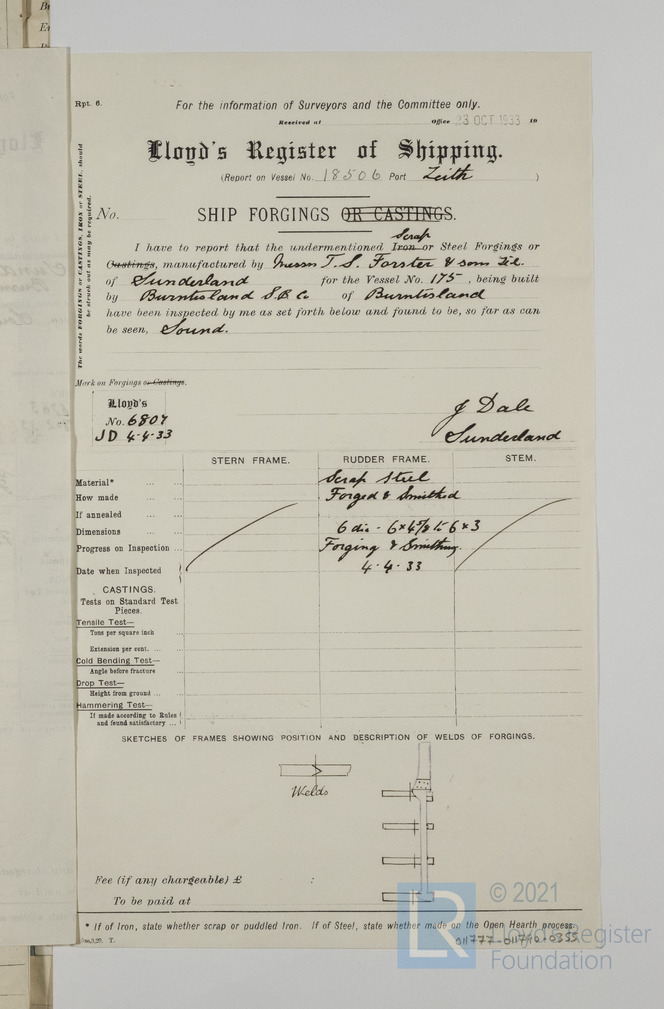 Rpt. 6.
For the information of Surveyors and the Committee only.
Received at Office 23 OCT 1933 19
Lloyd's Register of Shipping.
(Report on Vessel No. 18506 Port Leith )
No. SHIP FORGINGS OR CASTINGS.
The words FORGINGS or CASTINGS, IRON or STEEL, should
be struck out as may be required.
Scrap
I have to report that the undermentioned Iron or Steel Forgings or
Castings, manufactured by Messrs T. S. Forster & Sons Ltd.
of Sunderland for the Vessel No. 175, being built
by Burntisland S.B. Co of Burntisland
have been inspected by me as set forth below and found to be, so far as can
be seen, Sound.
Mark on Forgings or Castings.
Lloyd's
No. 6807
JD 4.4.33
J Dale
Sunderland
STERN FRAME. RUDDER FRAME. STEM.
Material* ... ... Scrap Steel
How made ... ... Forged & Smithed
If annealed ... ...
Dimensions ... ... 6 dia - 6×4 5/8 to 6×3
Progress on Inspection ... Forging & Smithing.
Date when Inspected 4.4.33
CASTINGS.
Tests on Standard Test
Pieces.
Tensile Test—
Tons per square inch ...
Extension per cent. ... ...
Cold Bending Test—
Angle before fracture ...
Drop Test—
Height from ground ... ...
Hammering Test—
If made according to Rules
and found satisfactory ...
SKETCHES OF FRAMES SHOWING POSITION AND DESCRIPTION OF WELDS OF FORGINGS.
Welds
Fee (if any chargeable) £ :
To be paid at
* If of Iron, state whether scrap or puddled Iron. If of Steel, state whether made on the Open Hearth process.
T.
011777-011790-0355
LR © 2021
Lloyd's Register
Foundation